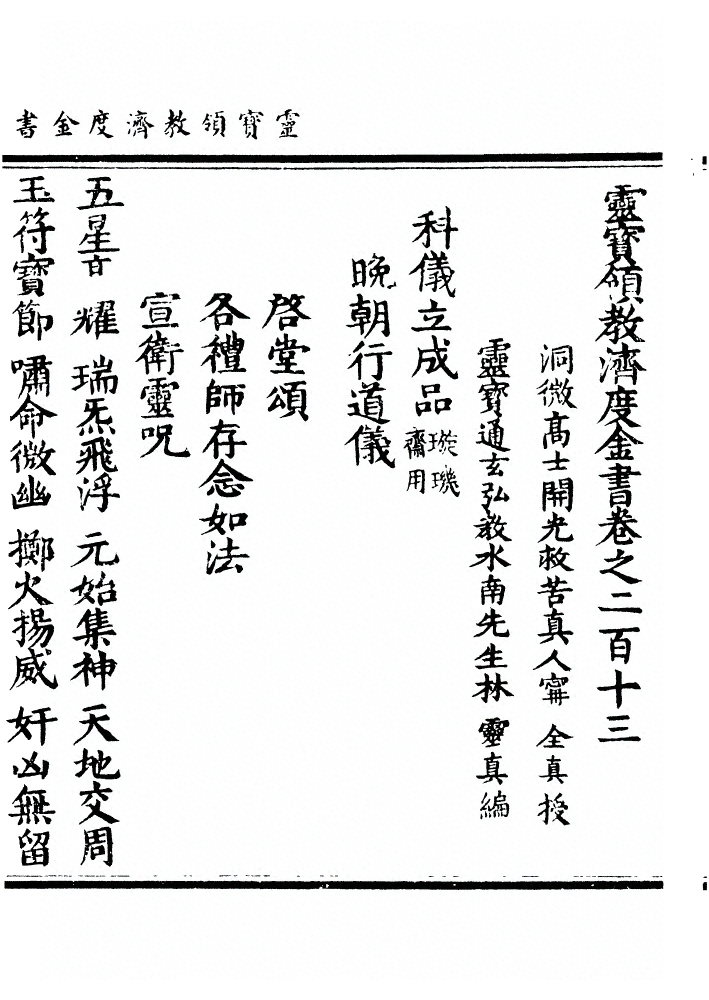 靈寶領教濟度金書
靈寶領教濟度金書卷之二百十三
洞微高士開光救苦真人寗　全真授
靈寶通玄弘教水南先生林　靈真編
科儀立成品璇璣齋用
晚朝行道儀
啓堂頌
各禮師存念如法
宣衛靈呪
五星　耀　瑞炁飛浮　元始集神　天地交周
玉符寶節　嘯命微幽　擲火揚威　奸凶無留